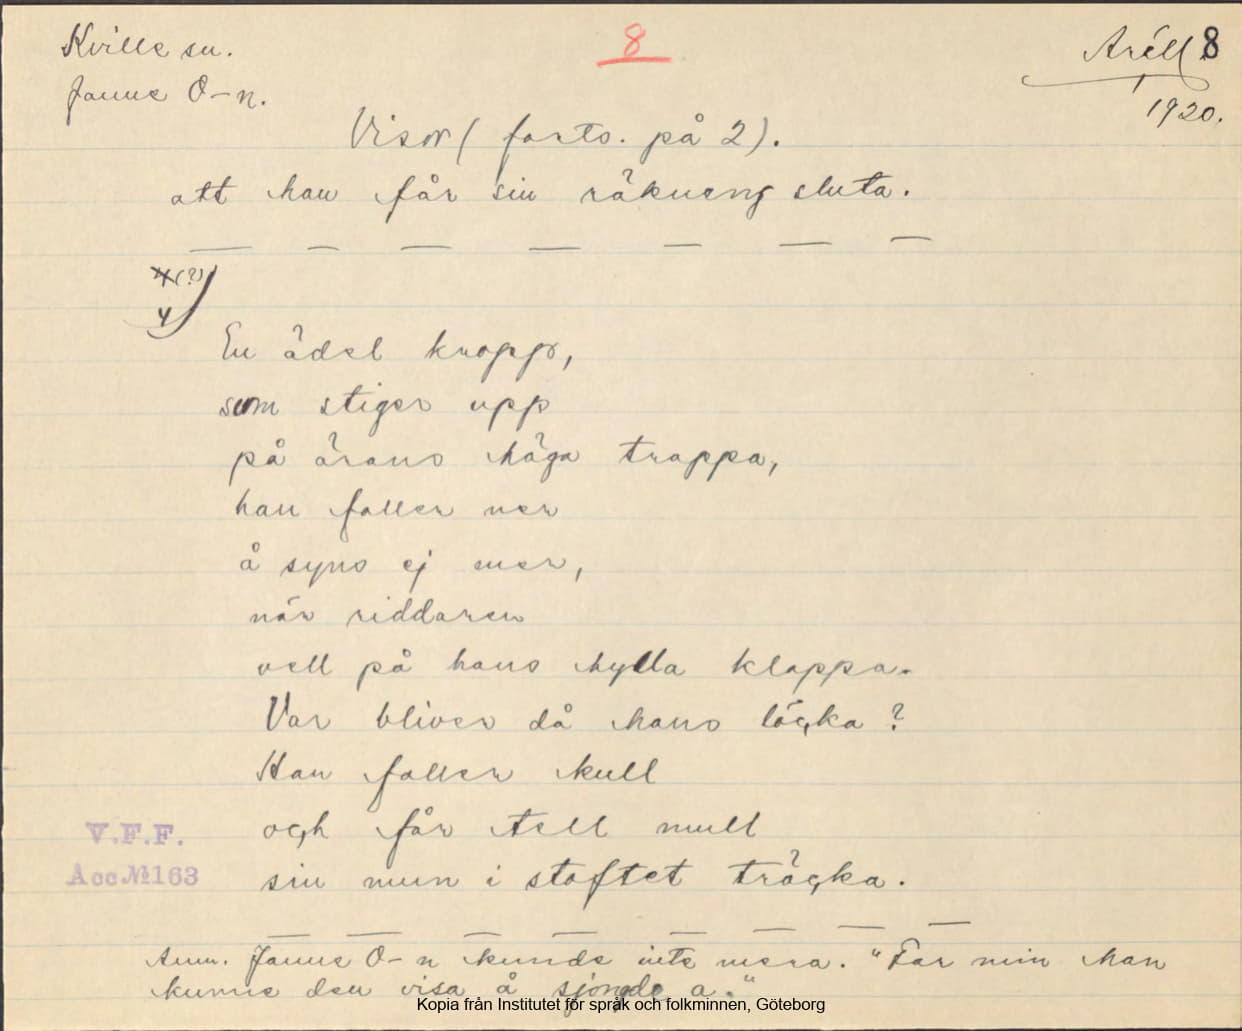 Kville sn.
8
Arill 8
Janne O-n.
1920.
Visor ( forts. på 2).
att han får sin räkneng sluta.
4(?)
4
En ädel kropp,
som stiger upp
på ärans höga trappa,
han faller ner
å syns ej mer,
när riddaren
vell på hans hylla klappa.
Var bliver då hans löcka?
Han faller kull
och får tell mull
V.F.F.
sin mun i stoftet tröcka.
Acc.№163
Anm. Janne O-n kunde inte mera. "Far min han
kunne den visa å sjongde a."
Kopia från Institutet för språk och folkminnen, Göteborg